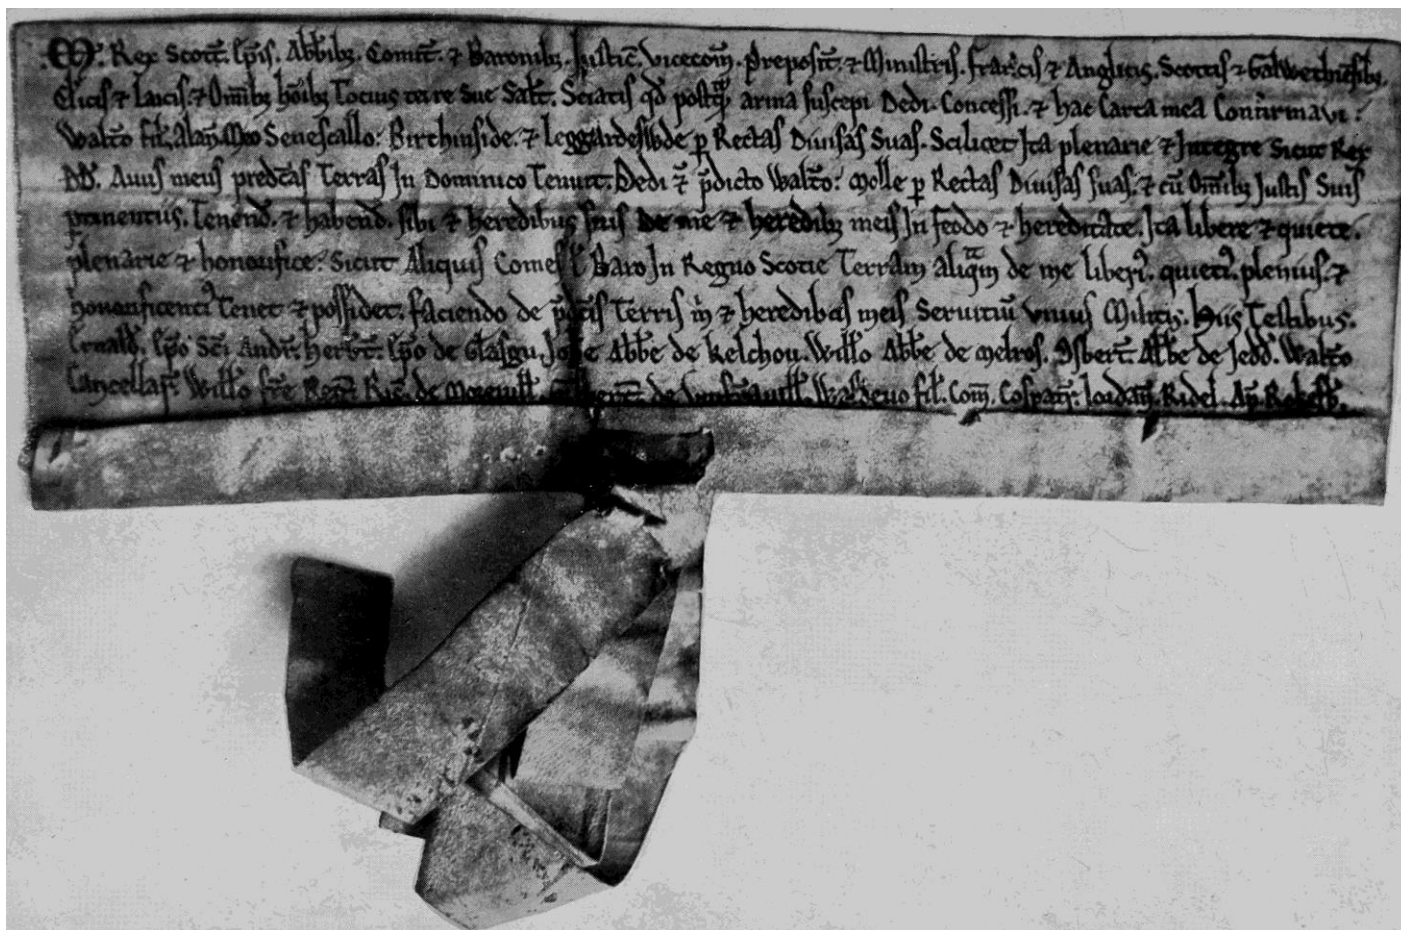 .M. Rex Scott. Ep̄is. Abb̄ibȝ. Comit̄. ⁊ Baronibȝ. Justic̄. Vicecom̄. Preposit̄. ⁊ Ministris. Francis ⁊ Anglicis. Scottis ⁊ Galwethiensibȝ.
Cl̄icis ⁊ Laicis. ⁊ Om̄ibȝ ho̅ibȝ Tocius terre Sue Salt̄. Sciatis qd̄ postqᵃ̄ arma suscepi Dedi. Concessi. ⁊ hac Carta mea Confirmavi:
Walt̄o fil̄. Alan̄. Meo Senescallo: Birchinside. ⁊ Leggardeswde ꝑ Rectas Diuisas Suas. Scilicet Ita plenarie ⁊ Integre Sicut Rex
DD̄. Auus meus pred̄cas Terras In Dominico Tenuit. Dedi ⁊̄ p̄dicto Walt̄o: Molle ꝑ Rectas Diuisas suas. ⁊ cū Om̄ibȝ Justis Suis
ꝑtinentiis. Tenend̄. ⁊ habend̄. sibi ⁊ heredibus suis de me ⁊ heredibȝ meis In feodo ⁊ hereditate. Ita libere ⁊ quiete.
plenarie ⁊ honorifice: Sicut Aliquis Comes ł Baro In Regno Scotie Terram aliqᵃm de me liberi᾽. quieti᾽. plenius. ⁊
honorificenti᾽ Tenet ⁊ possidet. faciendo de p̄dc̄is Terris m̄ ⁊ heredibus meis Seruitiū vnius Militis. Hiis Testibus.
Ernald̄. Ep̄o Sc̄i Andr̄. Herb̄t. Ep̄o de Glasgu. Joħe Abb̄e de Kelchou. Will̄o Abb̄e de Melros. Osbert̄. Abb̄e de Jedd̄. Walt̄o
Cancellar̄. Will̄o fr̄e Reḡ. Ric̄. de Moreuill̄. de Vmfrauill̄. Waldeuo fil̄. Com̄. Cospatᶦc. Jordan̄. Ridel.